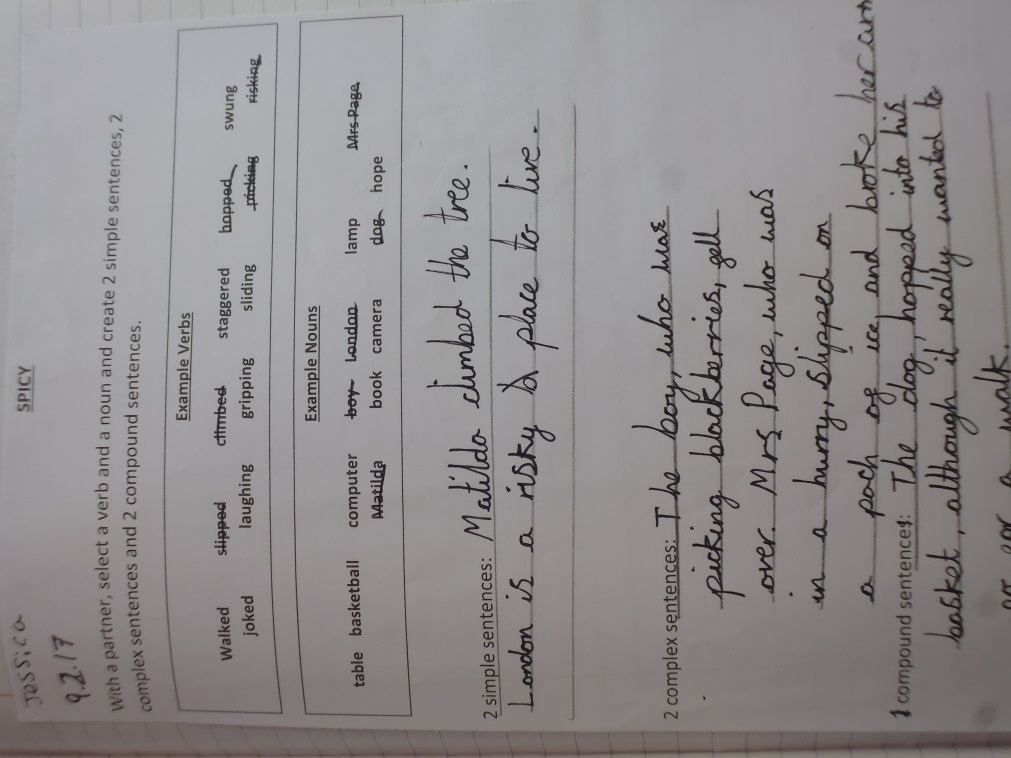 Jessica
SPICY
9.2.17
With a partner, select a verb and a noun and create 2 simple sentences, 2
complex sentences and 2 compound sentences.
Example Verbs
Walked slipped climbed staggered hopped swung
joked laughing gripping sliding picking risking
Example Nouns
table basketball computer boy London lamp Mrs Page
Matilda book camera dog hope
2 simple sentences: Matilda climbed the tree.
London is a risky place to live.
2 complex sentences: The boy, who was
picking blackberries, fell
over. Mrs Page, who was
in a hurry, slipped on
a pach of ice and broke her arm
1 compound sentences: The dog, hopped into his
basket, although it really wanted to
go for a walk.